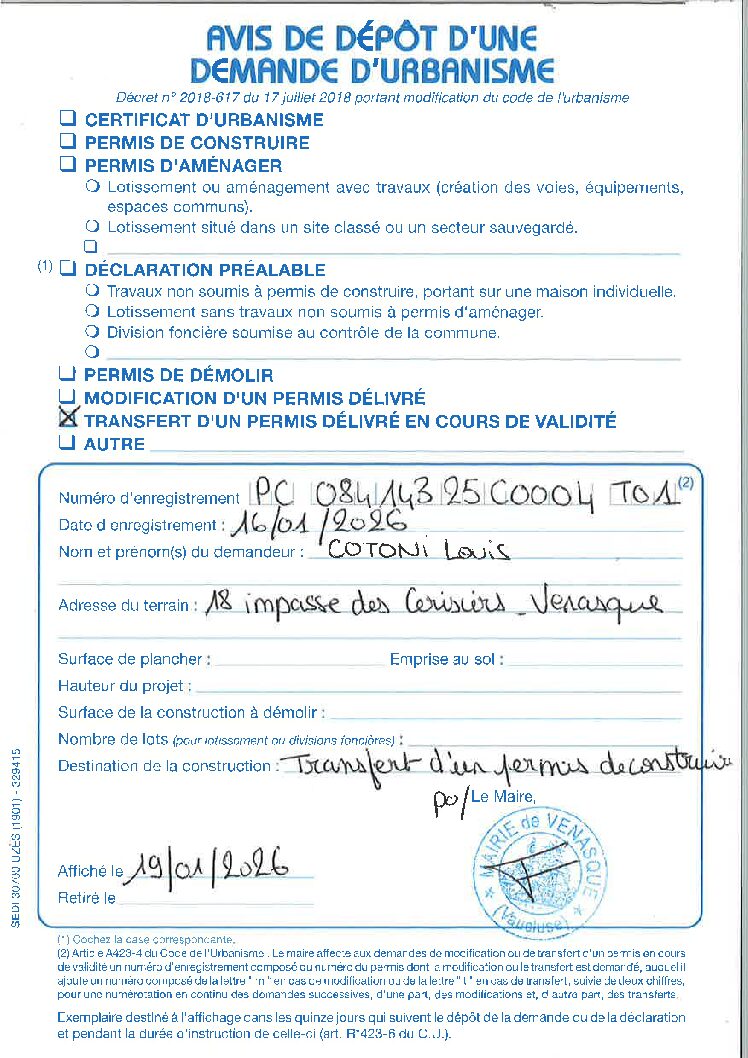 AVIS DE DÉPÔT D'UNE
DEMANDE D'URBANISME
Décret n° 2018-617 du 17 juillet 2018 portant modification du code de l'urbanisme
CERTIFICAT D'URBANISME
PERMIS DE CONSTRUIRE
PERMIS D'AMÉNAGER
Lotissement ou aménagement avec travaux (création des voies, équipements,
espaces communs).
Lotissement situé dans un site classé ou un secteur sauvegardé.
(1) DÉCLARATION PRÉALABLE
Travaux non soumis à permis de construire, portant sur une maison individuelle.
Lotissement sans travaux non soumis à permis d'aménager.
Division foncière soumise au contrôle de la commune.
PERMIS DE DÉMOLIR
MODIFICATION D'UN PERMIS DÉLIVRÉ
TRANSFERT D'UN PERMIS DÉLIVRÉ EN COURS DE VALIDITÉ
AUTRE
Numéro d'enregistrement PC 084 143 25 C0004 T01 (2)
Date d enregistrement : 16/01/2026
Nom et prénom(s) du demandeur : COTONI Louis
Adresse du terrain : 18 impasse des Cerisiers - Venasque
Surface de plancher : Emprise au sol :
Hauteur du projet :
Surface de la construction à démolir :
Nombre de lots (pour lotissement ou divisions foncières) :
Destination de la construction : Transfert d'un permis de construire
po/ Le Maire,
MAIRIE de VENASQUE
(Vaucluse)
Affiché le 19/01/2026
Retiré le
SEDI 30700 UZÈS (1901) - 329415
(1) Cochez la case correspondante.
(2) Article A423-4 du Code de l'Urbanisme : Le maire affecte aux demandes de modification ou de transfert d'un permis en cours
de validité un numéro d'enregistrement composé du numéro du permis dont la modification ou le transfert est demandé, auquel il
ajoute un numéro composé de la lettre " m " en cas de modification ou de la lettre " t " en cas de transfert, suivie de deux chiffres,
pour une numérotation en continu des demandes successives, d'une part, des modifications et, d'autre part, des transferts.
Exemplaire destiné à l'affichage dans les quinze jours qui suivent le dépôt de la demande ou de la déclaration
et pendant la durée d'instruction de celle-ci (art. R*423-6 du C.U.).